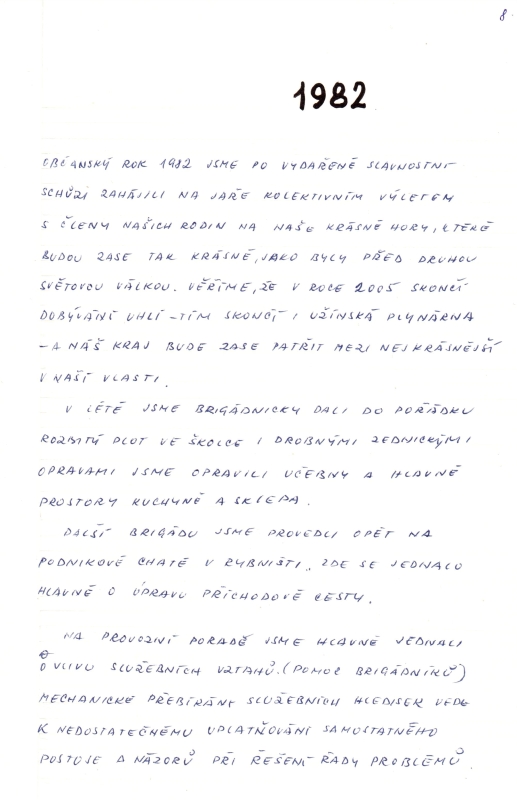 8
1982
OBČANSKÝ ROK 1982 JSME PO VYDAŘENÉ SLAVNOSTNÍ
SCHŮZI ZAHÁJILI NA JAŘE KOLEKTIVNÍM VÝLETEM
S ČLENY NAŠICH RODIN NA NAŠE KRÁSNÉ HORY, KTERÉ
BUDOU ZASE TAK KRÁSNÉ, JAKO BYLY PŘED DRUHOU
SVĚTOVOU VÁLKOU. VĚŘÍME, ŽE V ROCE 2005 SKONČÍ
DOBÝVÁNÍ UHLÍ – TÍM SKONČÍ I UŽÍNSKÁ PLYNÁRNA
– A NÁŠ KRAJ BUDE ZASE PATŘIT MEZI NEJKRÁSNĚJŠÍ
V NAŠÍ VLASTI.
V LÉTĚ JSME BRIGÁDNICKY DALI DO POŘÁDKU
ROZBITÝ PLOT VE ŠKOLCE I DROBNÝMI ZEDNICKÝMI
OPRAVAMI JSME OPRAVILI UČEBNY A HLAVNĚ
PROSTORY KUCHYNĚ A SKLEPA.
DALŠÍ BRIGÁDU JSME PROVEDLI OPĚT NA
PODNIKOVÉ CHATĚ V RYBNIŠTI. ZDE SE JEDNALO
HLAVNĚ O ÚPRAVU PŘÍCHODOVÉ CESTY.
NA PROVOZNÍ PORADĚ JSME HLAVNĚ JEDNALI
O VLIVU SLUŽEBNÍCH VZTAHŮ. (POMOC BRIGÁDNÍKŮ)
MECHANICKÉ PŘEBÍRÁNÍ SLUŽEBNÍCH HLEDISEK VEDE
K NEDOSTATEČNÉMU UPLATŇOVÁNÍ SAMOSTATNÉHO
POSTOJE A NÁZORŮ PŘI ŘEŠENÍ ŘADY PROBLÉMŮ.